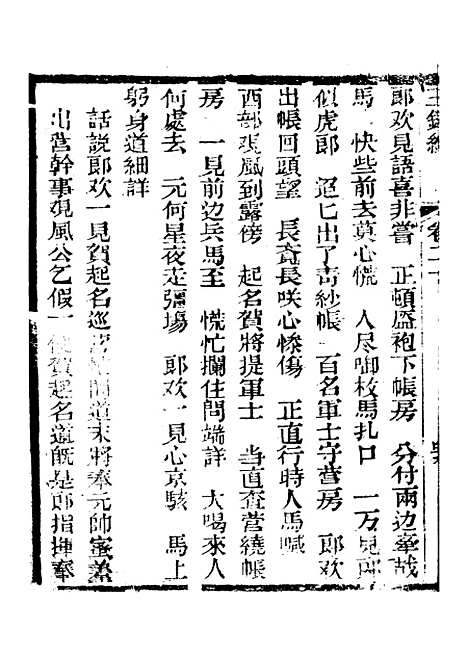 郎欢見語喜非嘗　正頓盔袍下帳房　分付兩边牽戟
馬　快些前去莫心慌　人尽啣枚馬扎口　一万見郎
似虎郎　迢匕出了青紗帳　百名軍士守营房　郎欢
出帳回頭望　長斉長咲心慘傷　正直行時人馬喊
西部覌風到露傍　起名賀將提軍士　当直查营繞帳
房　一見前边兵馬至　慌忙攔住問端詳　大喝來人
何處去　元何星夜走彊塲　郎欢一見心京駭　馬上
躬身道細詳
話說郎欢一見賀起名巡 道末將奉元帥蜜差
出营幹事覌風公乞假一 賀起名道旣是郎指揮奉